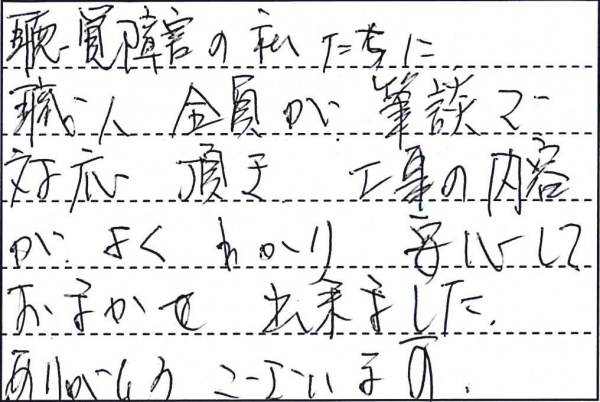 聴覚障害の私たちに
職人全員が筆談で
対応頂き 工事の内容
が よく わかり 安心して
おまかせ 出来ました.
ありがとうございます.